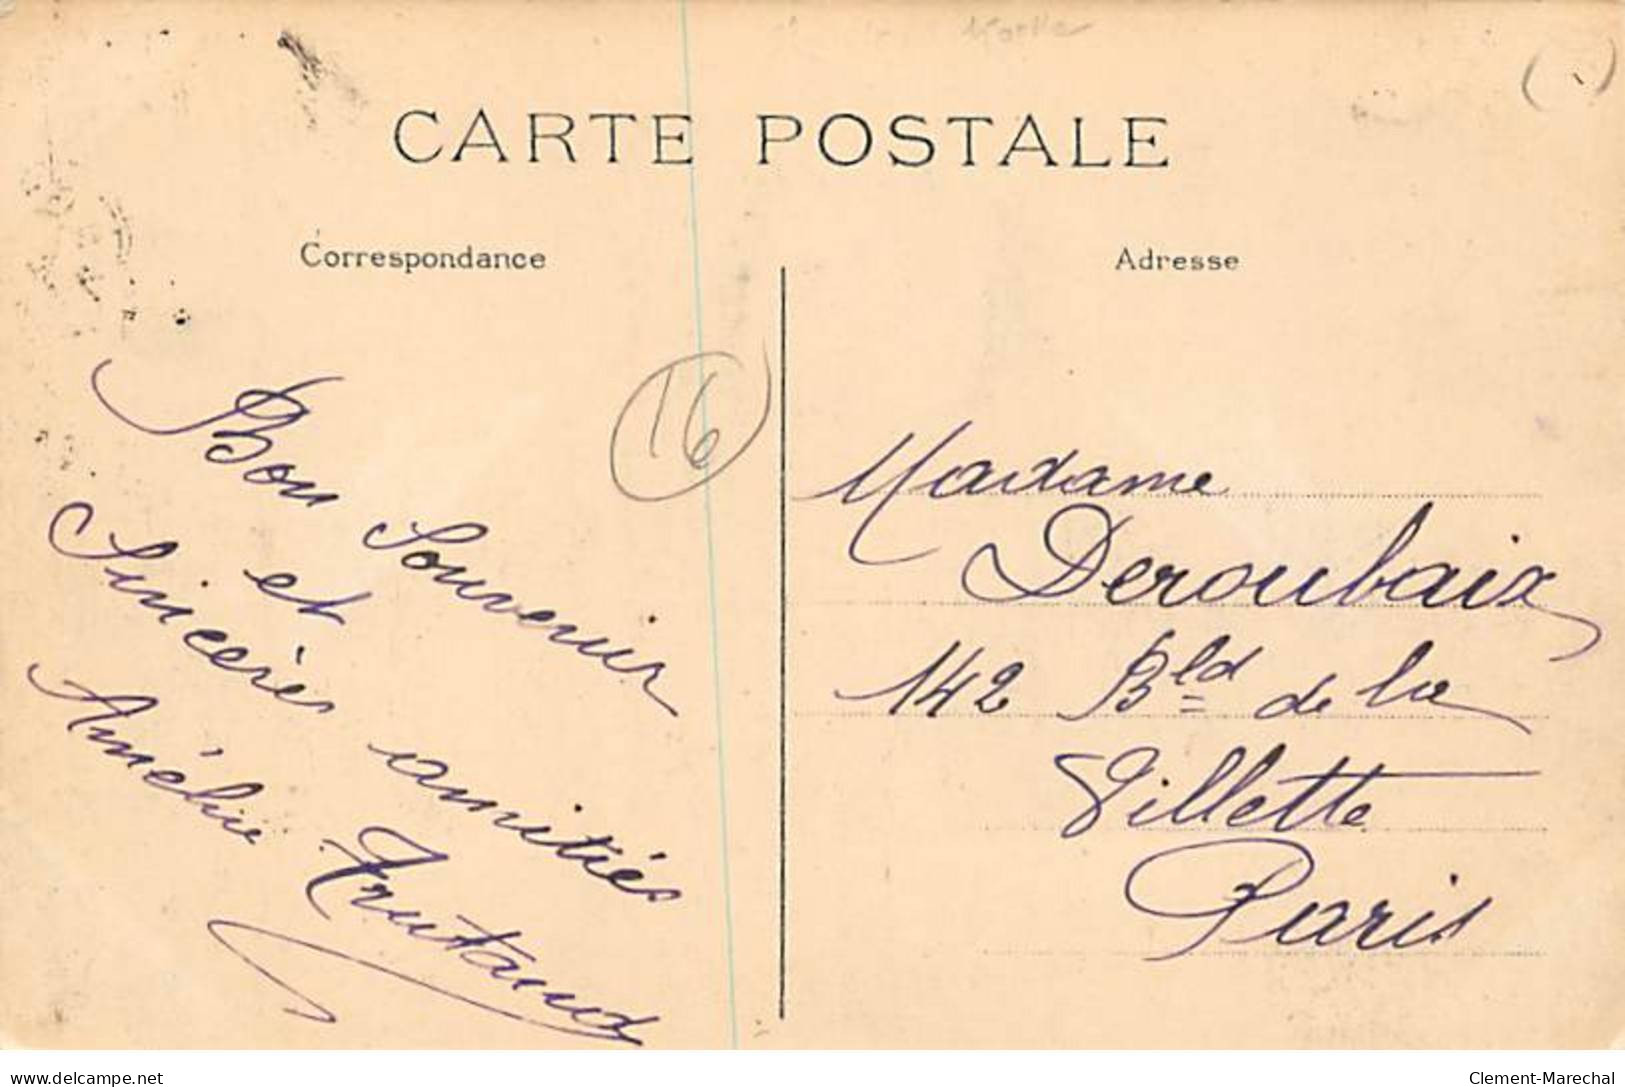 CARTE POSTALE
Correspondance
Adresse
16
Bon Souvenir
et
Sincères amitiés
Amélie
Madame
Deroubaix
142 Bld de la
Villette
Paris
delcampe.net
Clement-Marechal